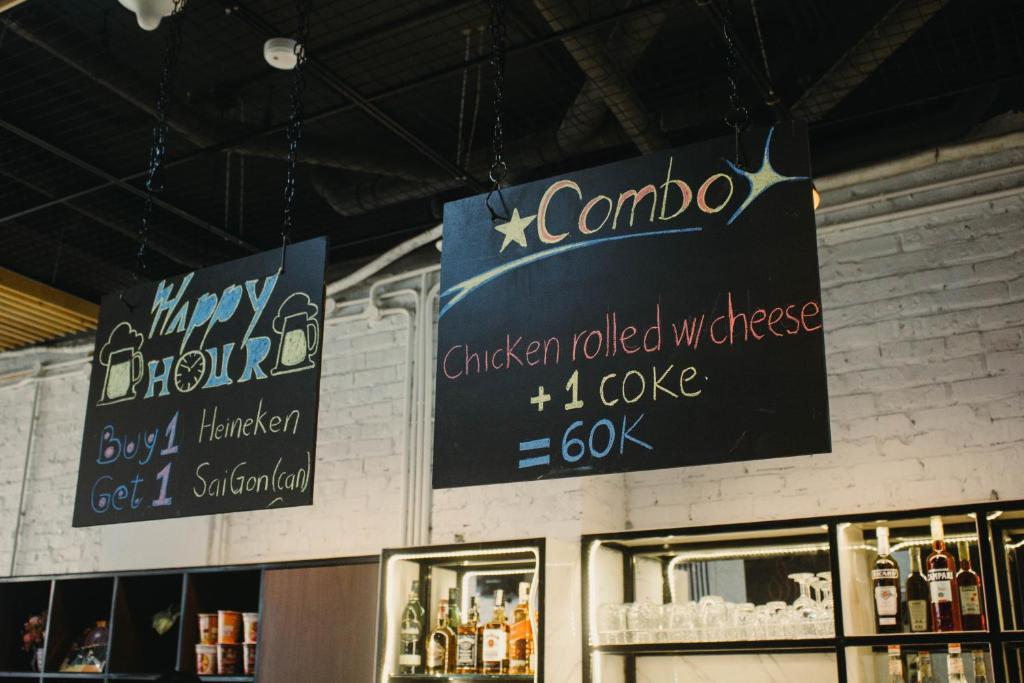 Happy
HOUR
Buy 1 Heineken
Get 1 SaiGon(can)
Combo
Chicken rolled w/cheese
+ 1 COKE.
= 60K
CAMPARI